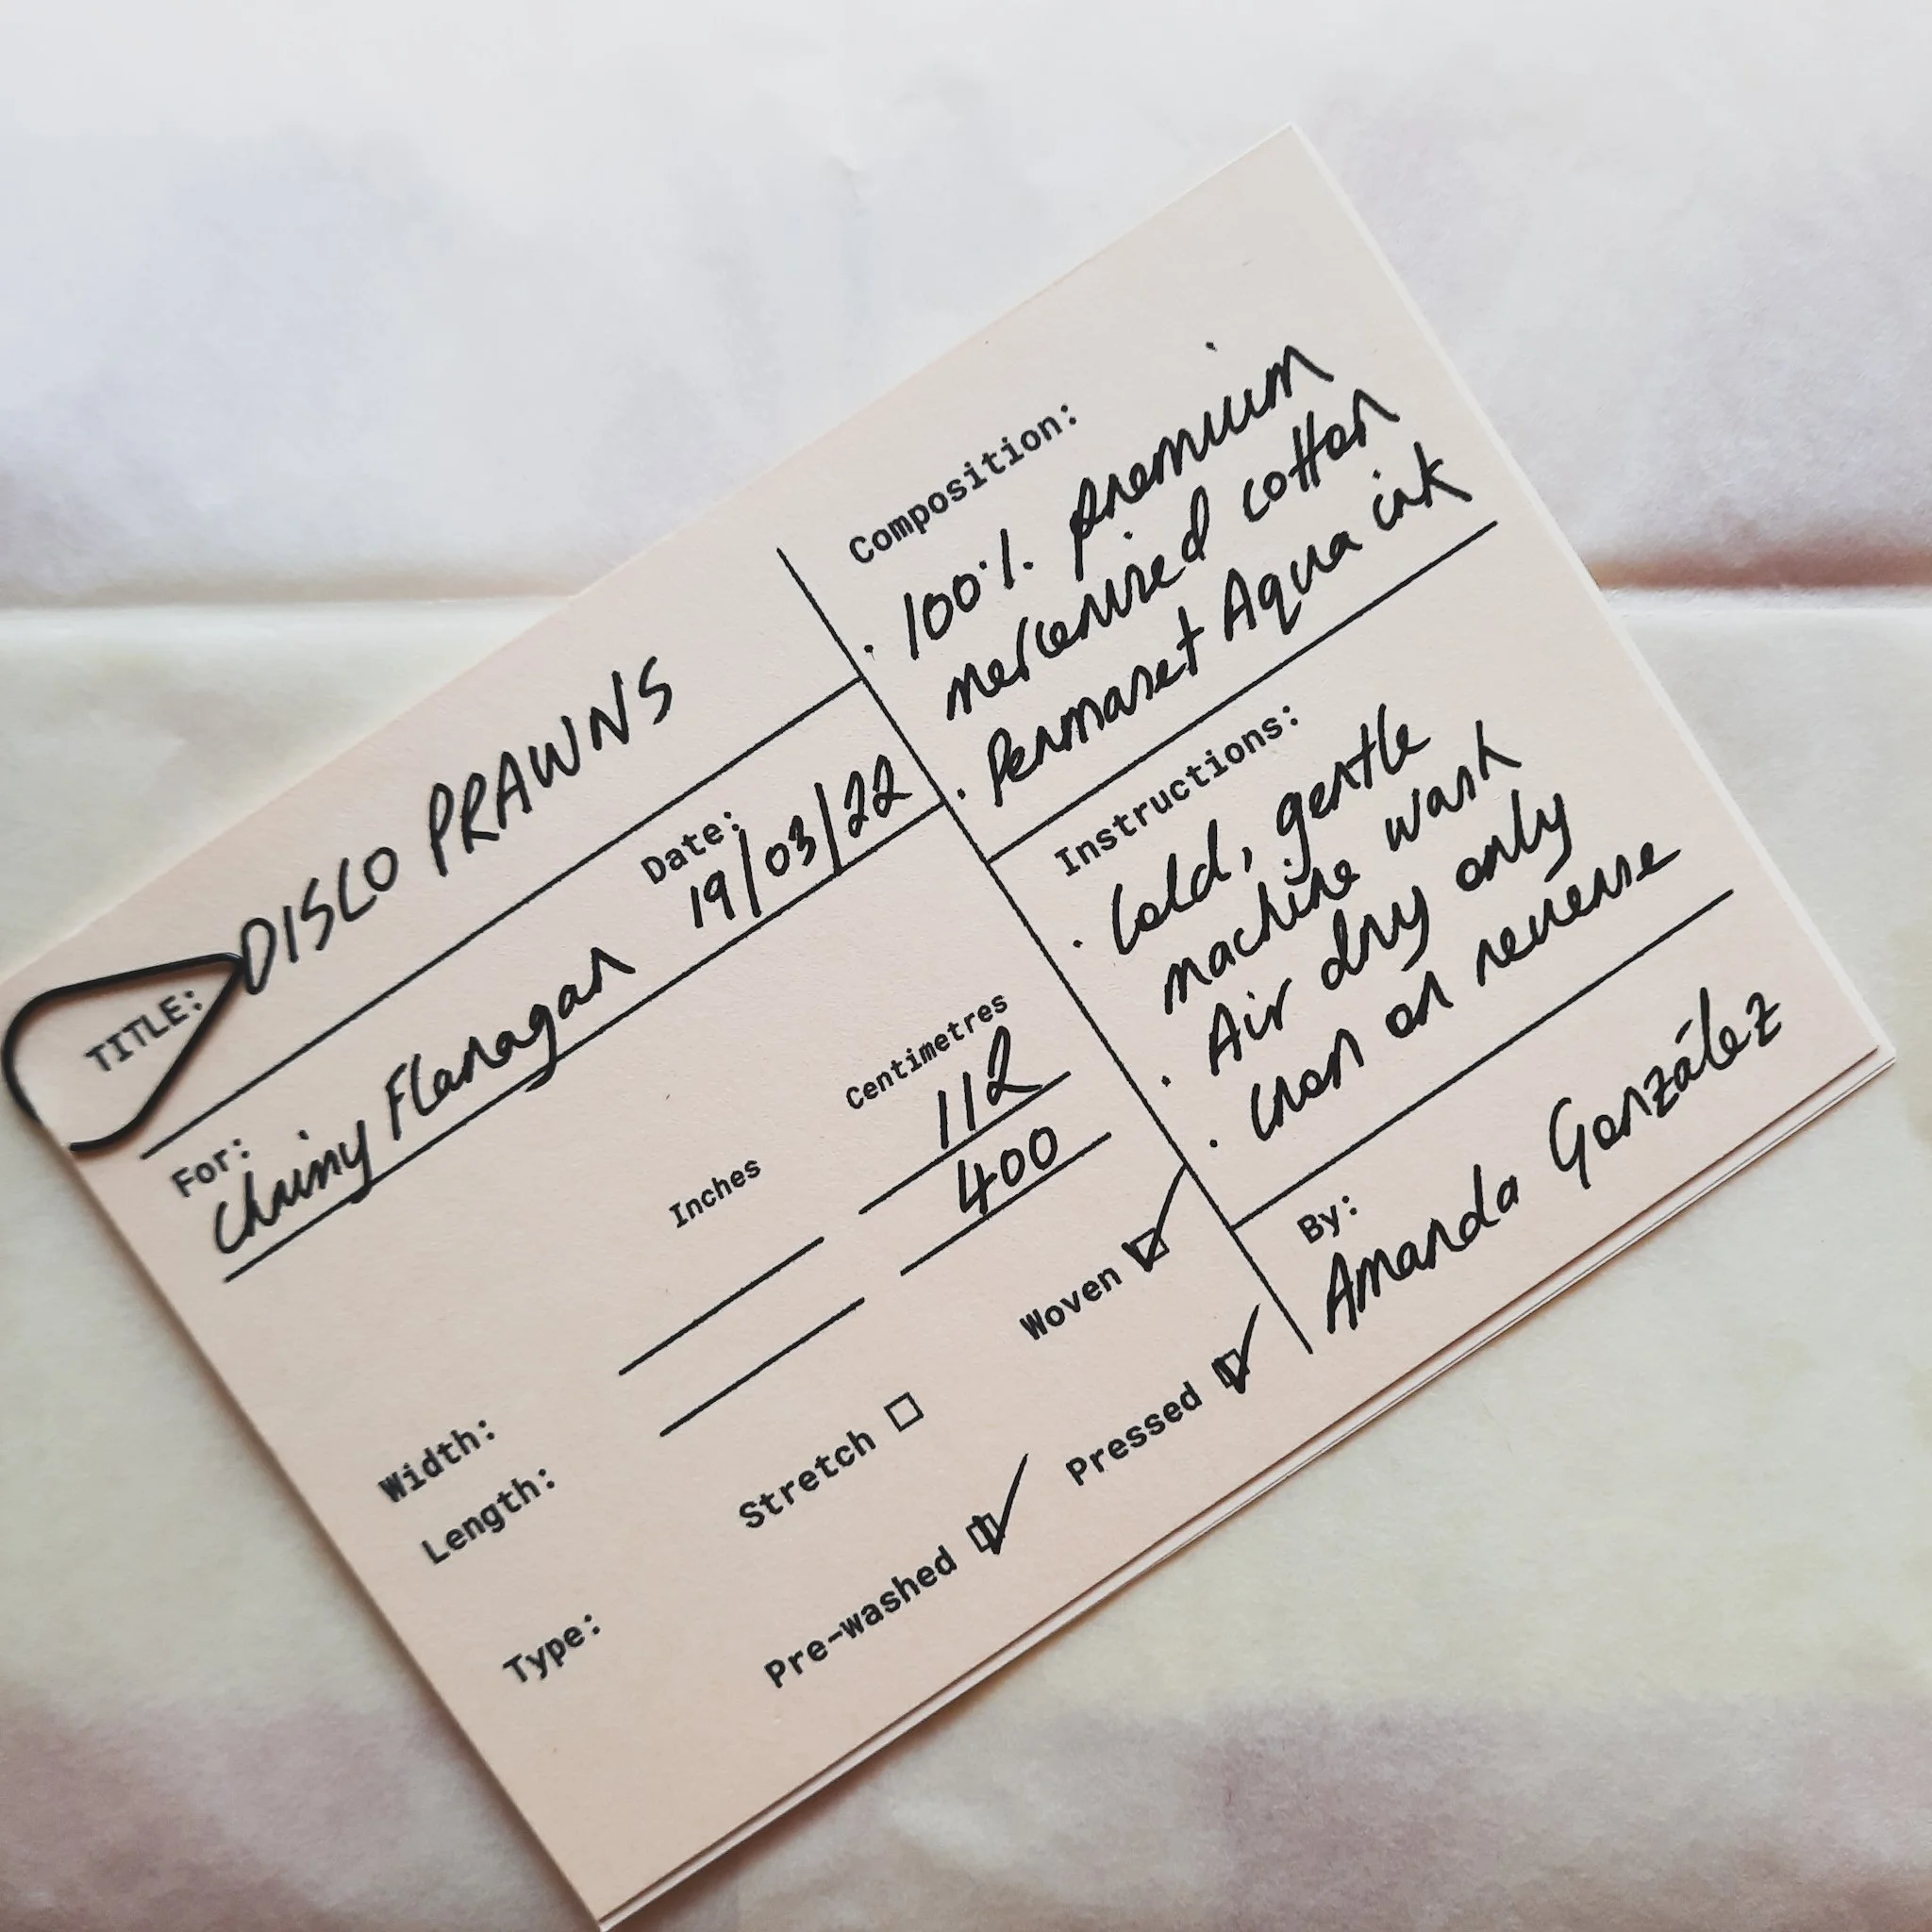 TITLE: DISCO PRAWNS
For: Date:
Chainy Flanagan 19/03/22
Inches Centimetres
Width: 112
Length: 400
Type: Stretch Woven
Pre-washed Pressed
Composition:
· 100% premium
mercerized cotton
· Permaset Aqua ink
Instructions:
· Cold, gentle
machine wash
· Air dry only
· Iron on reverse
By:
Amanda González